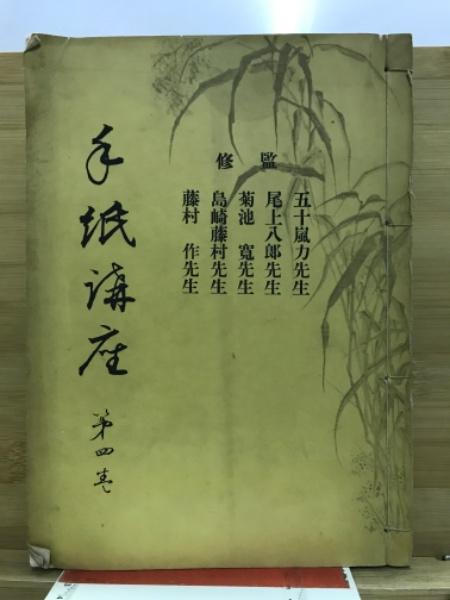 監修
五十嵐力先生
尾上八郎先生
菊池寛先生
島崎藤村先生
藤村作先生
手紙講座
第四巻